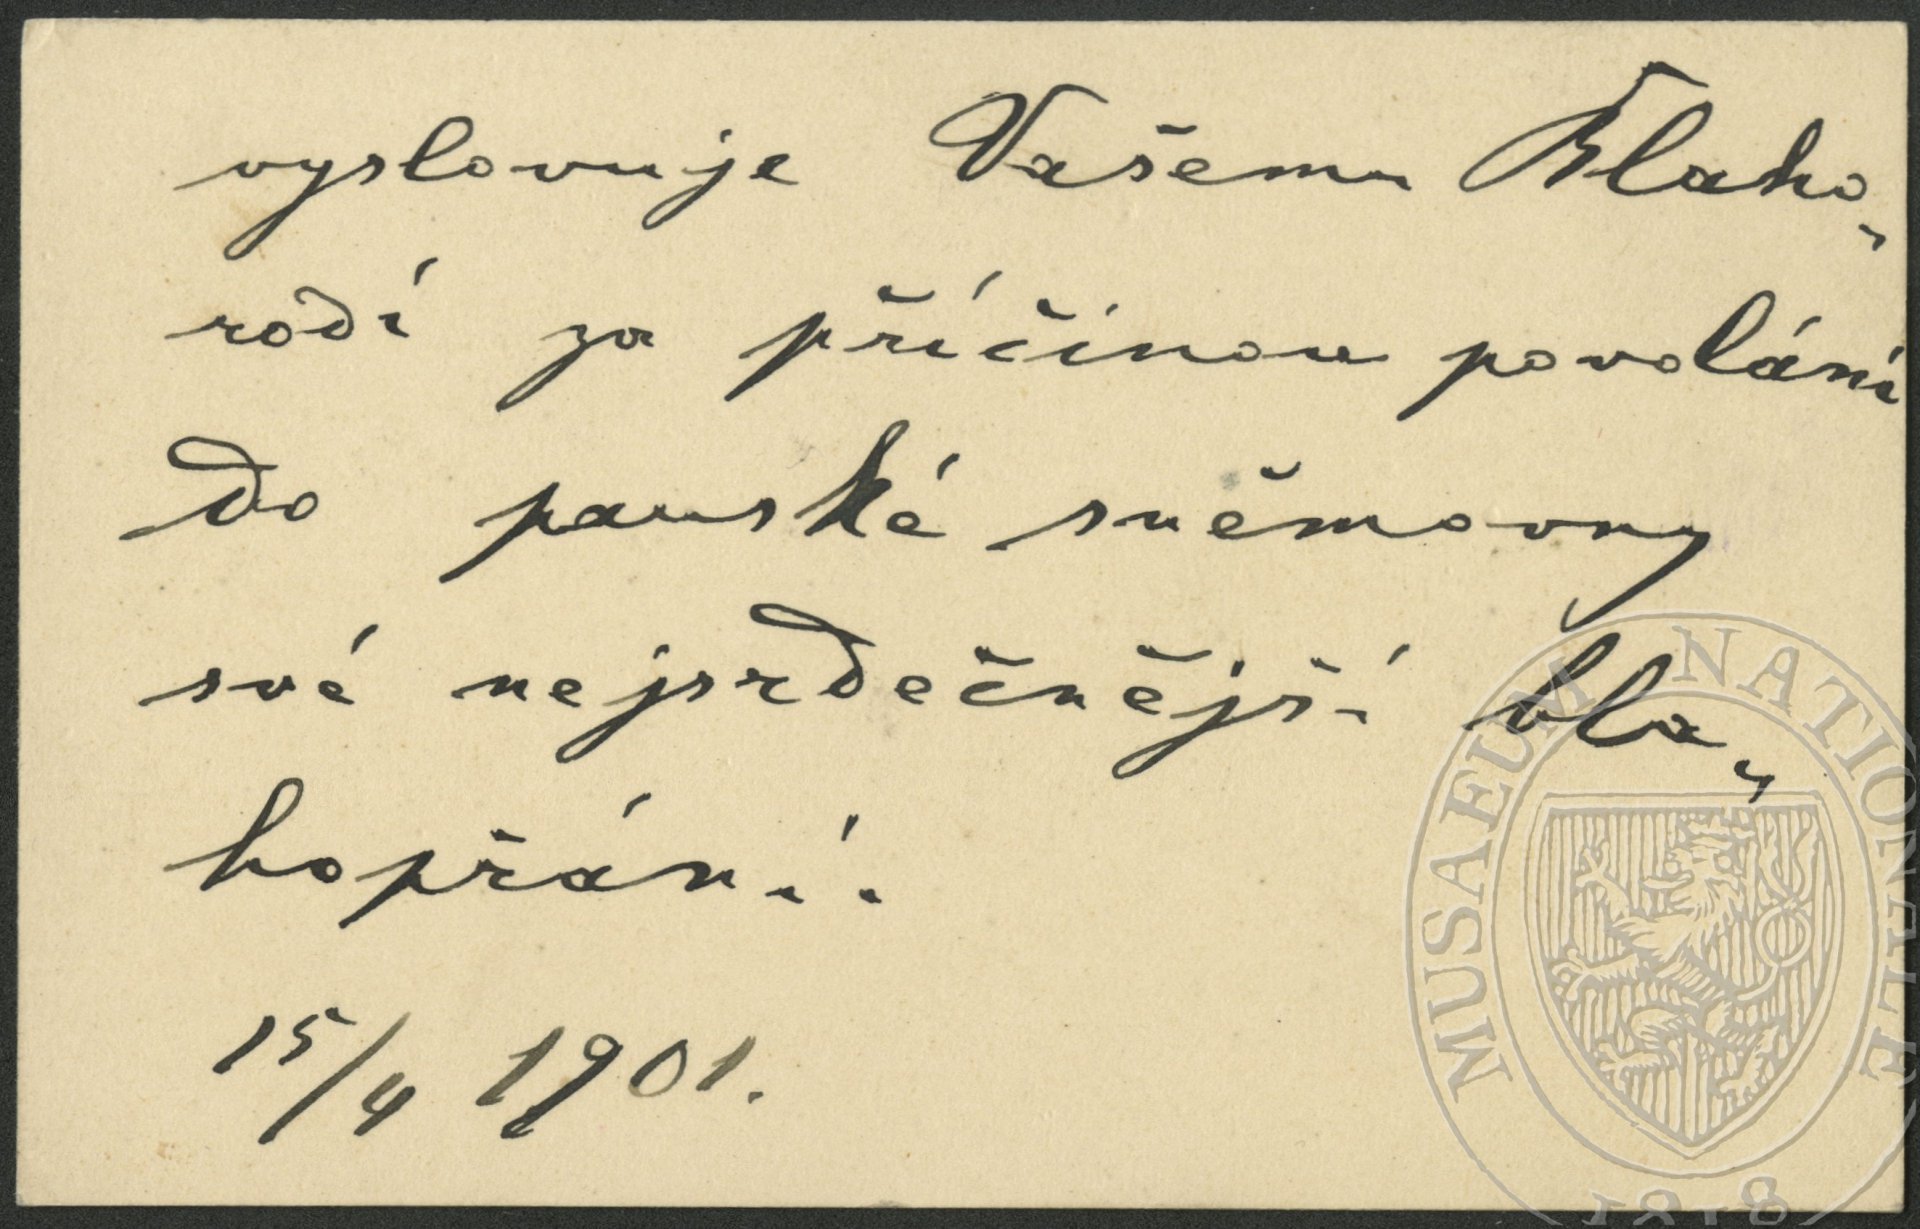 vyslovuje Vašemu Blaho-
rodí za příčinou povolání
do panské sněmovny
své nejsrdečnější bla-
hopřání.
15/4 1901.
MUSAEUM NATIONALE
1818